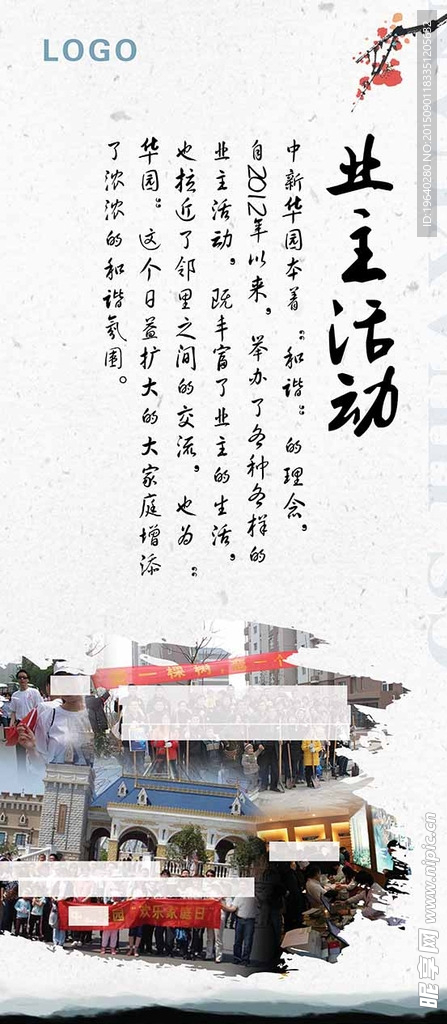 LOGO
业主活动
中新华园本着“和谐”的理念，
自2012年以来，举办了各种各样的
业主活动，既丰富了业主的生活，
也拉近了邻里之间的交流，也为“
华园”这个日益扩大的大家庭增添
了浓浓的和谐氛围。
一棵树
一个
园“欢乐家庭日”
ID:19640280 NO:20150901183351205632
昵享网 www.nipic.cn